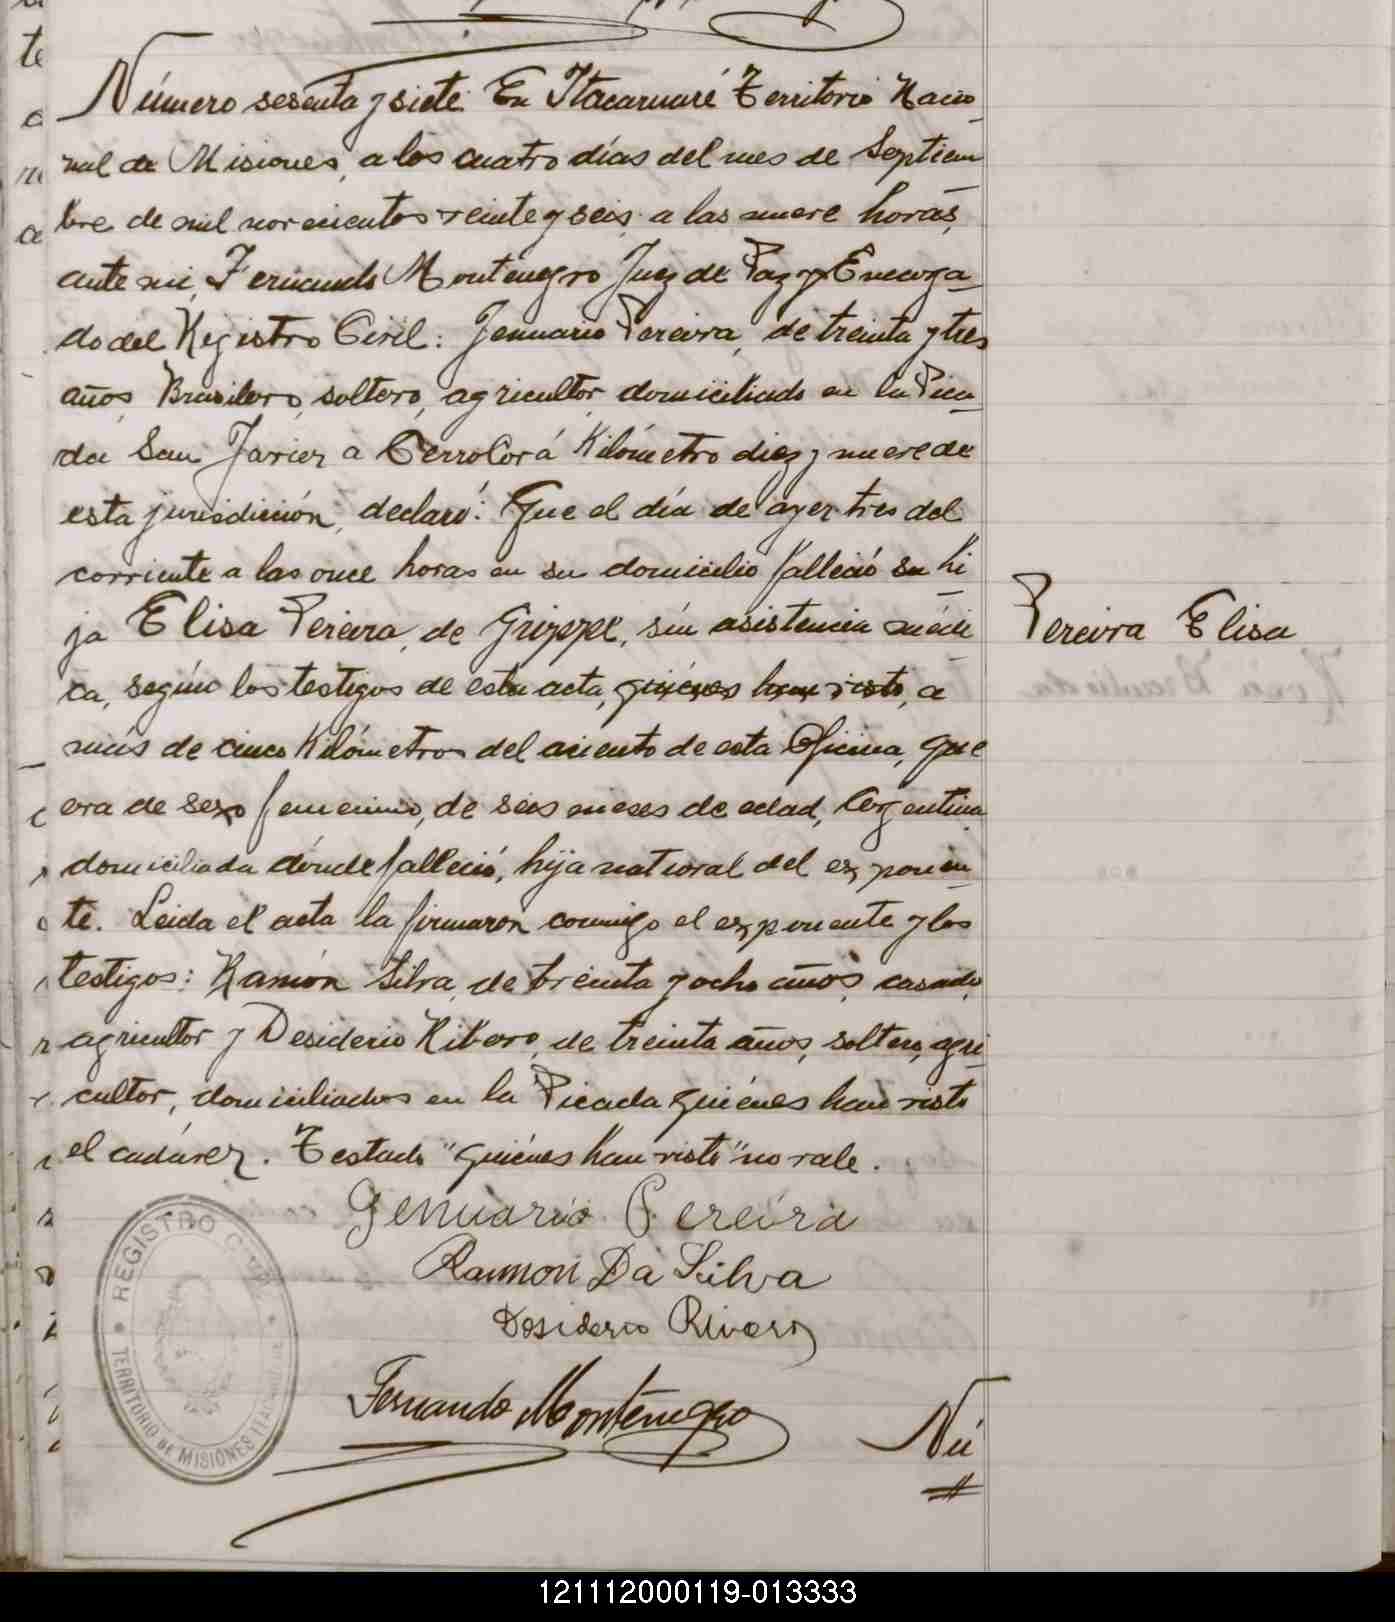 Número sesenta y siete. En Itacaruaré Territorio Nacio-
nal de Misiones, a los cuatro días del mes de Septiem
bre de mil novecientos veinte y seis, a las nueve horas,
ante mi, Fernando Montenegro Juez de Paz y Encarga-
do del Registro Civil: Jenuario Pereira, de treinta y tres
años, Brasilero, soltero, agricultor, domiciliado en la Pica-
da San Javier a Cerro Corá Kilómetro diez y nueve de
esta jurisdición, declaró: Que el día de ayer tres del
corriente a las once horas en su domicilio falleció su hi-
ja Elisa Pereira, de Grippe, sin asistencia médi-
ca, según los testigos de esta acta, quiénes han visto, a
más de cinco Kilómetros del aciento de esta Oficina, que
era de sexo femenino, de seis meses de edad, Argentina
domiciliada dónde falleció, hija natural del exponen-
te. Leida el acta la firmaron conmigo el exponente y los
testigos: Ramón Silva, de treinta y ocho años, casado,
agricultor y Desiderio Ribero, de treinta años, soltero, agri-
cultor, domiciliados en la Picada quiénes han visto
el cadáver. Testado "quiénes han visto" no vale.
Pereira Elisa
Genuario Pereira
Ramon Da Silva
Desiderio Rivero
Fernando Montenegro
Nú
REGISTRO CIVIL
TERRITORIO DE MISIONES
121112000119-013333